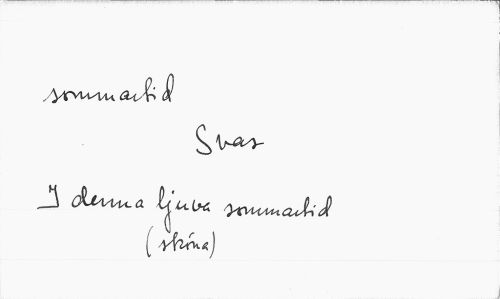 sommartid
Svas
I denna ljuva sommartid
(sköna)